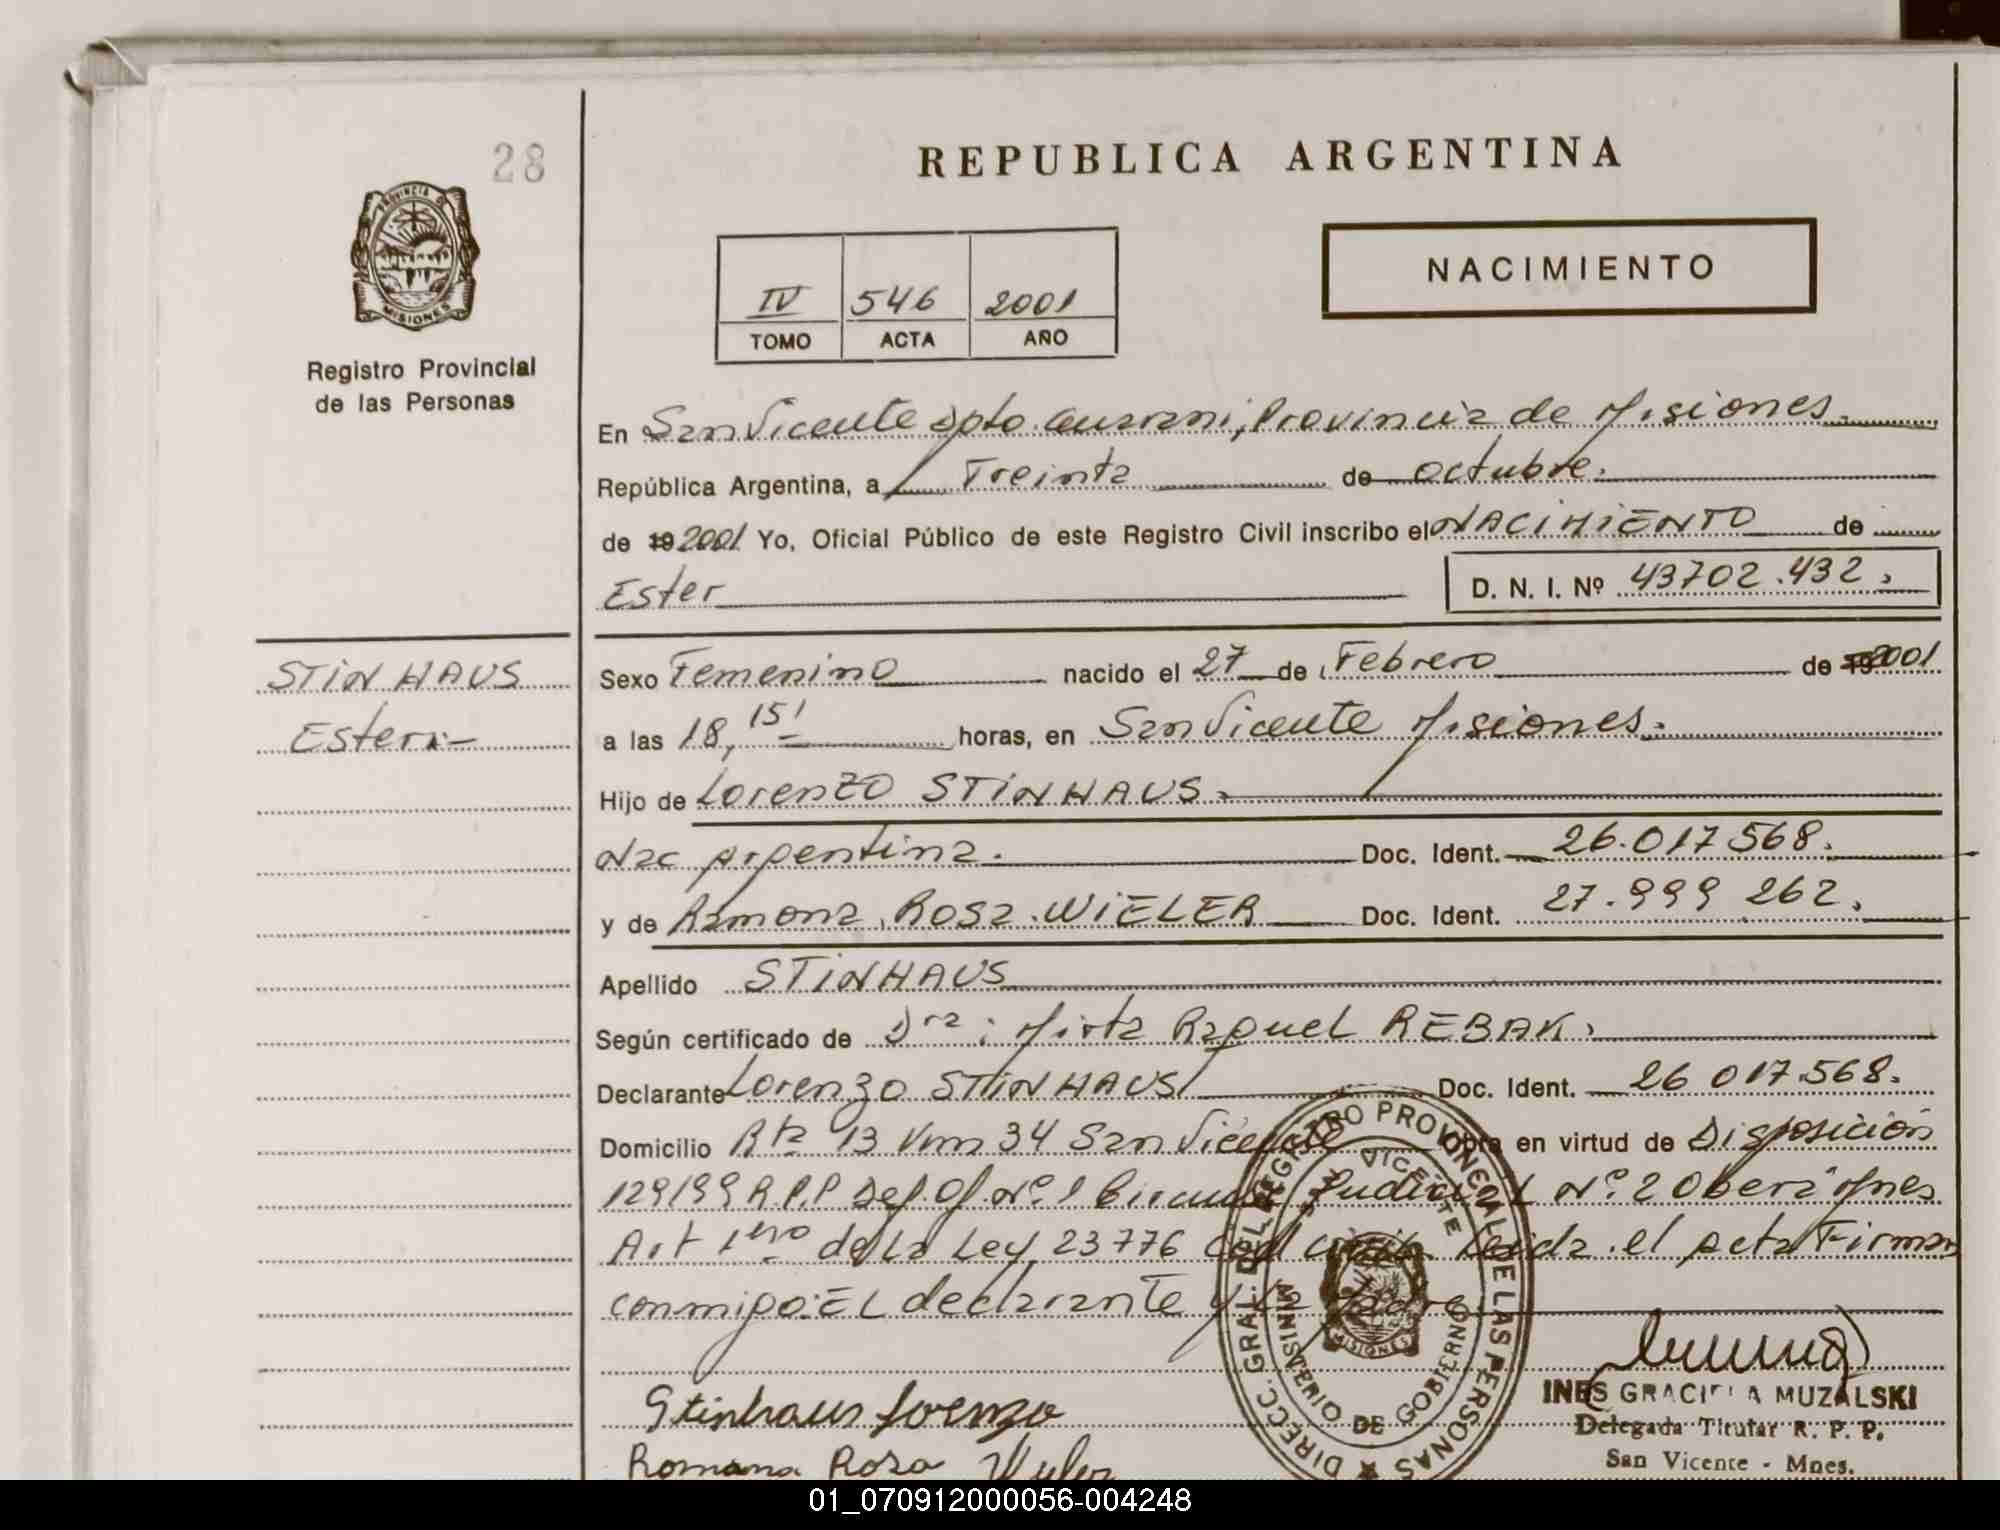 28
PROVINCIA DE
MISIONES
Registro Provincial
de las Personas
REPUBLICA ARGENTINA
NACIMIENTO
IV 546 2001
TOMO ACTA AÑO
En San Vicente Dpto. Guarani, Provincia de Misiones.
República Argentina, a Treinta de octubre.
de 19 2001 Yo, Oficial Público de este Registro Civil inscribo el NACIMIENTO de
Ester D. N. I. Nº 43702.432.
STINHAUS
Ester.-
Sexo Femenino nacido el 27 de Febrero de 19 2001
a las 18,15' horas, en San Vicente Misiones.
Hijo de Lorenzo STINHAUS.
Nac Argentina. Doc. Ident. 26.017568.
y de Ramona Rosa WIELER Doc. Ident. 27.999 262.
Apellido STINHAUS
Según certificado de Dra: Mirta Raquel REBAK.
Declarante Lorenzo STINHAUS Doc. Ident. 26 017.568.
Domicilio Rta 13 Km 34 San Vicente Obra en virtud de Disposición
129/99 R.P.P Def. Of. Nº. 1 Judicial Nº. 2 Obera Mnes
Art 1ero de la Ley 23776 Leida el acta Firman
conmigo: EL declarante y la Madre
Stinhaus Lorenzo
Romana Rosa
DIRECC. GRAL. DEL REGISTRO PROVINCIAL DE LAS PERSONAS
SAN VICENTE
MINISTERIO DE GOBIERNO
MISIONES
INES GRACIELA MUZALSKI
Delegada Titular R. P. P.
San Vicente - Mnes.
01_070912000056-004248